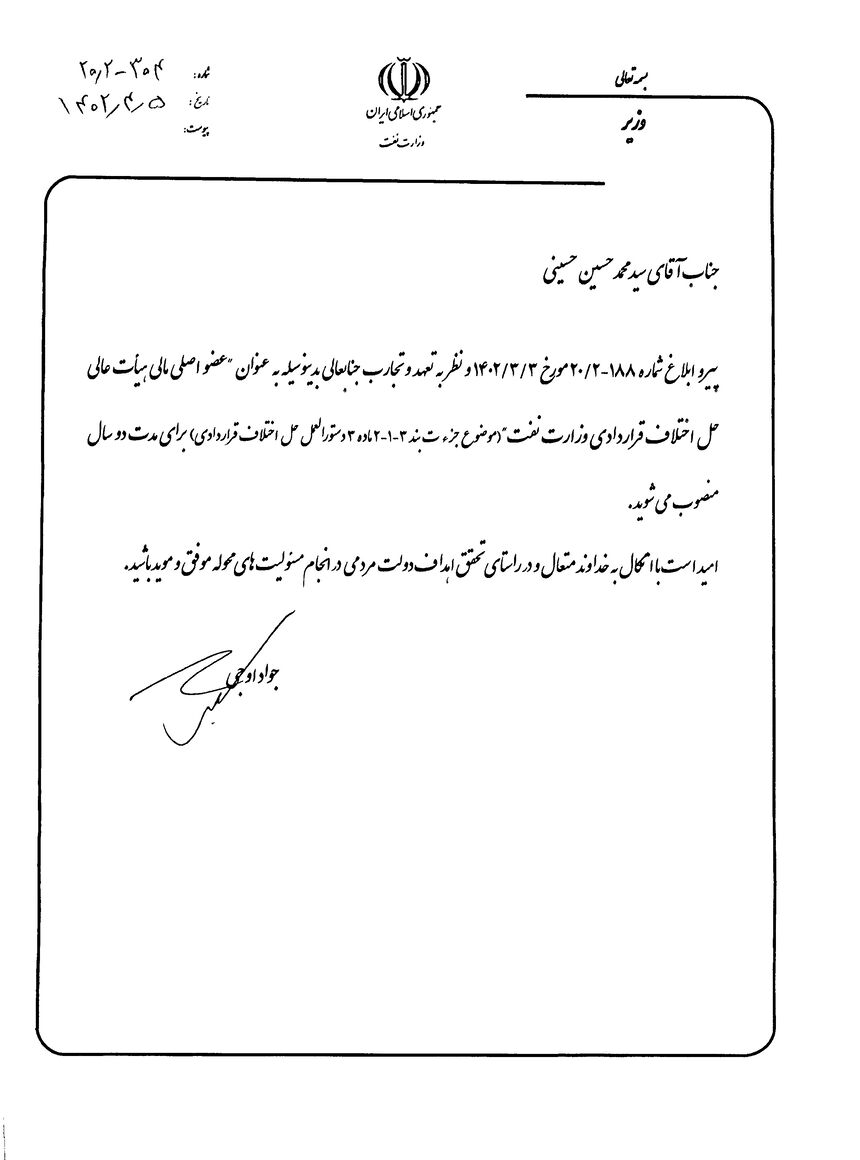 بسمه تعالی
وزیر
جمهوری اسلامی ایران
وزارت نفت
شماره: ۲۰/۲-۳۰۴
تاریخ: ۱۴۰۲/۴/۵
پیوست:
جناب آقای سید محمد حسین حسینی
پیرو ابلاغ شماره ۱۸۸-۲۰/۲ مورخ ۱۴۰۲/۳/۳ و نظر به تعهد و تجارب جنابعالی بدینوسیله به عنوان "عضو اصلی مالی هیأت عالی
حل اختلاف قراردادی وزارت نفت" (موضوع جزء ت بند ۳-۱-۲ ماده ۳ دستورالعمل حل اختلاف قراردادی) برای مدت دو سال
منصوب می شوید.
امید است با اتکال به خداوند متعال و در راستای تحقق اهداف دولت مردمی در انجام مسئولیت های محوله موفق و موید باشید.
جواد اوجی